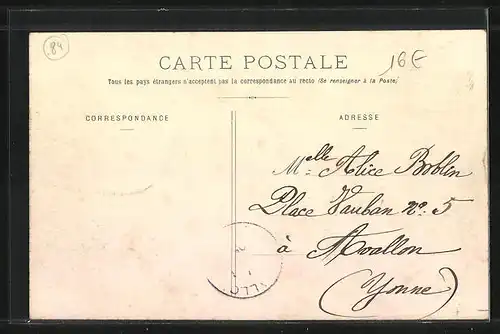 84
16E
CARTE POSTALE
Tous les pays étrangers n'acceptent pas la correspondance au recto (Se renseigner à la Poste)
CORRESPONDANCE
ADRESSE
Melle Alice Boblin
Place Vauban no: 5
à Avallon
(Yonne)